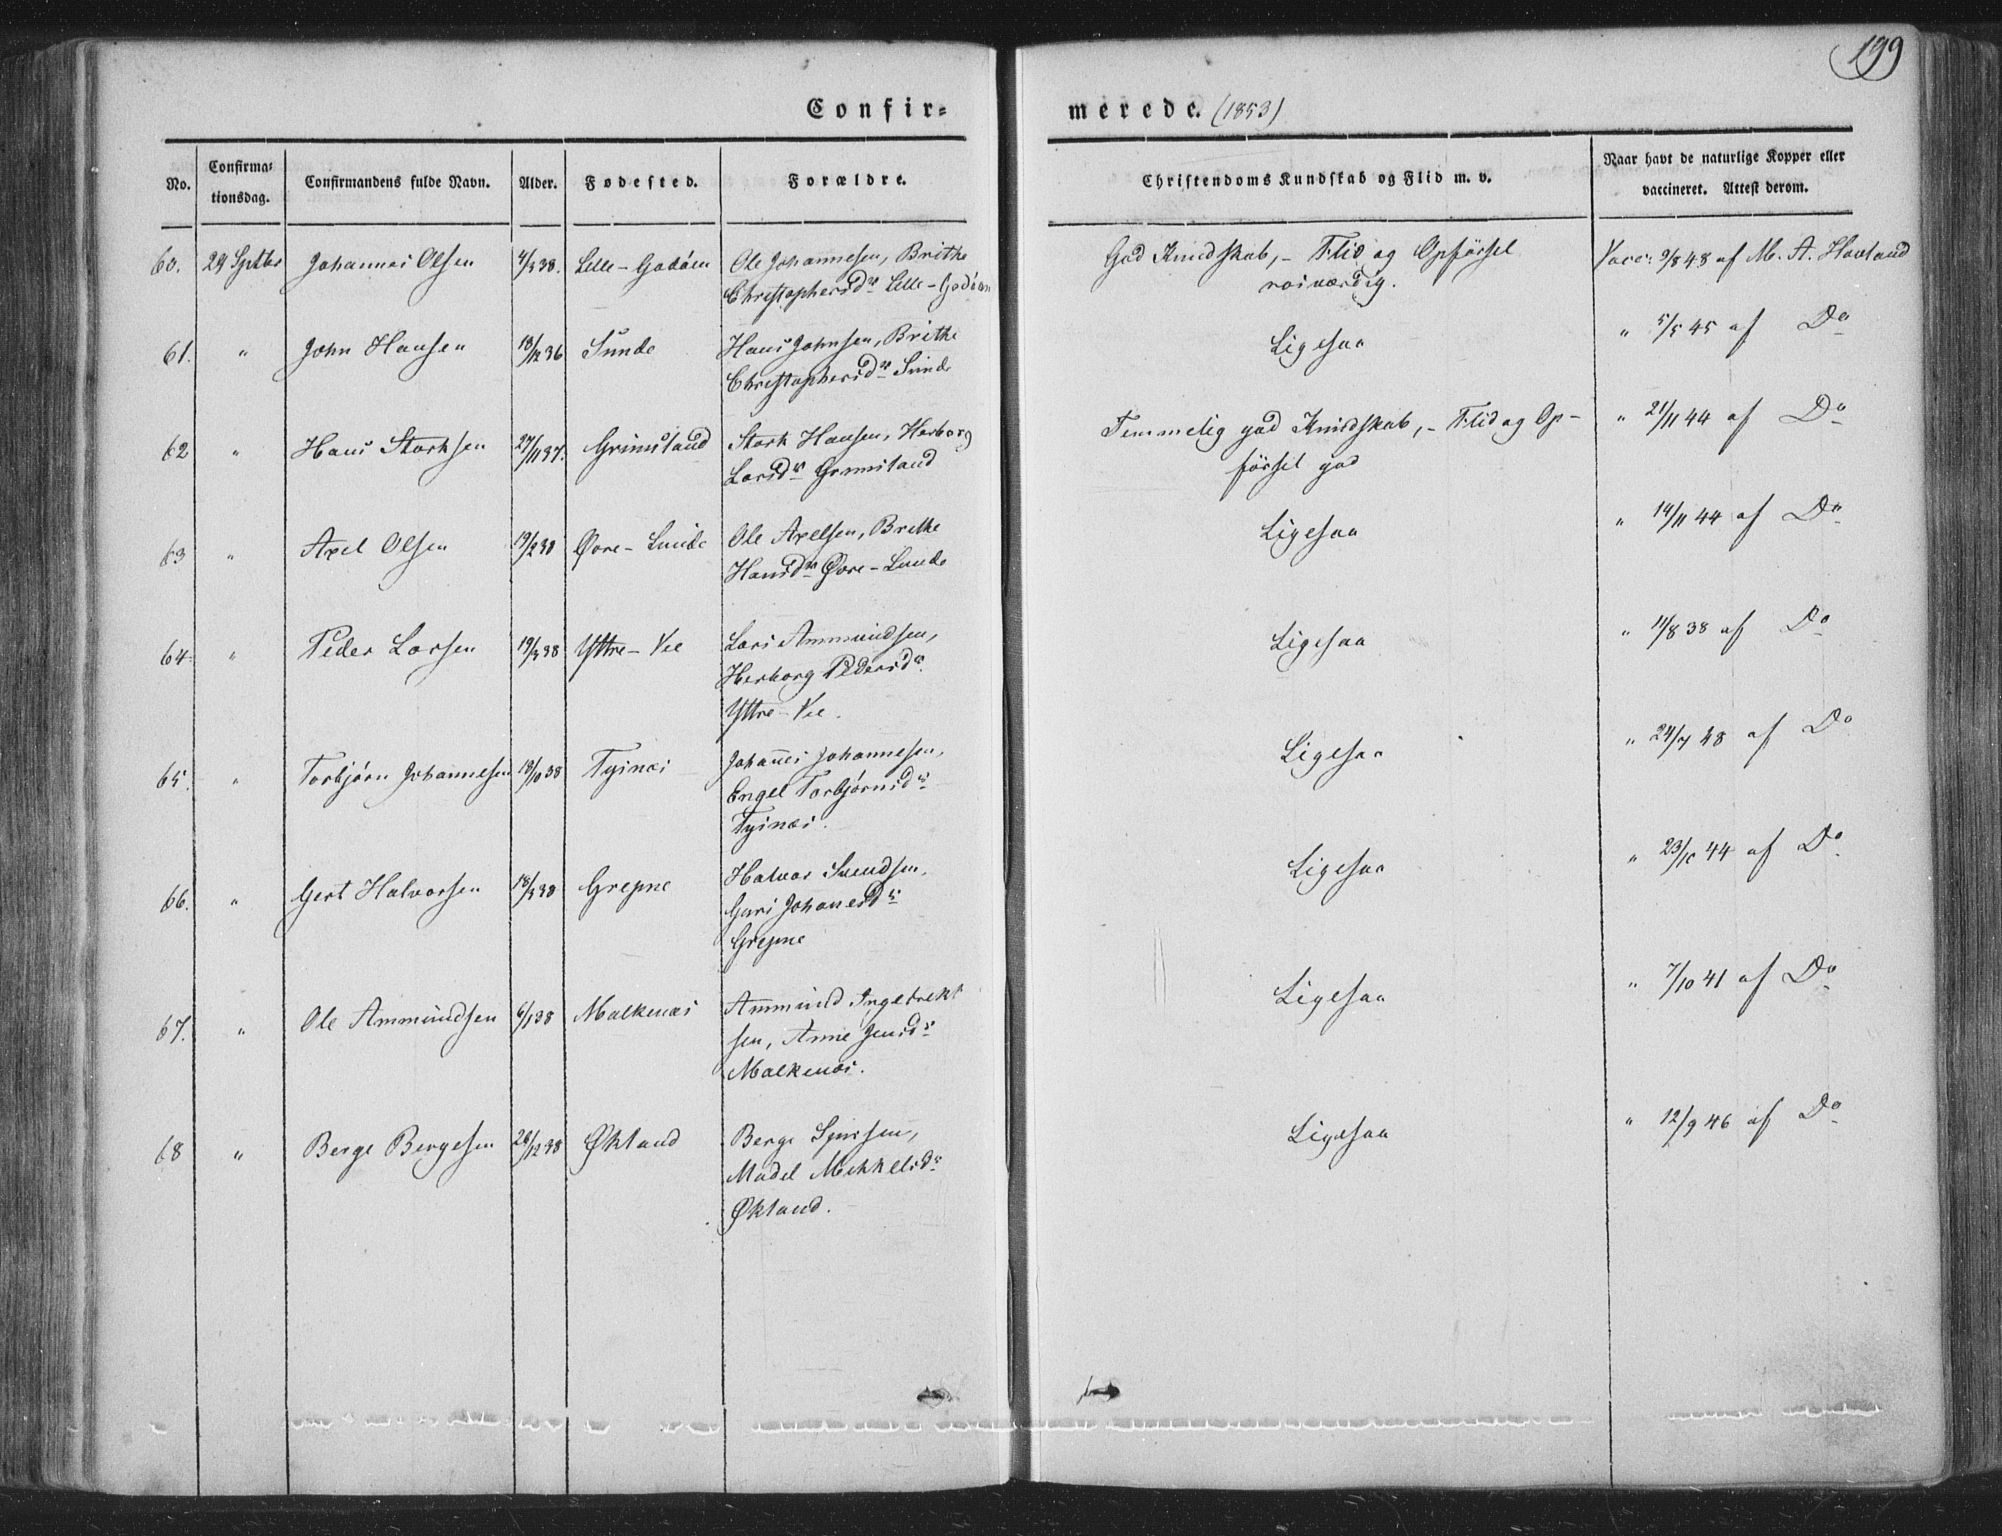 199
Confir-
merede. (1853)
No.
Confirma-
tionsdag.
Confirmandens fulde Navn.
Alder.
Fødested.
Forældre.
Christendoms Kundskab og Flid m. v.
Naar havt de naturlige Kopper eller
vaccineret. Attest derom.
60. 29 Septbr Johannes Olsen 4/3 38. Lille-Godøen Ole Johannesen, Brithe God Kundskab, - Flid og Opførsel Vacc: 9/8 48 af M. A. Havland
Christophersdr Lille-Godøen rosværdig.
61. " John Hansen 18/12 36 Sunde Hans Johnsen, Brithe Ligesaa " 5/5 45 af Do
Christophersdr Sunde
62 " Hans Storksen 27/11 37. Grimstand Stork Hansen, Herborg Temmelig god Kundskab, - Flid og Op-
" 21/11 44 af Do
Larsdr Grimstand førsel god
63 " Axel Olsen 19/2 38 Øvre-Lunde Ole Axelsen, Brithe Ligesaa " 14/11 44 af Do
Hansdr Øvre-Lunde
64 " Peder Larsen 19/3 38 Yttre-Vee Lars Ammundsen, Ligesaa " 11/8 38 af Do
Herborg Pedersdr
Yttre-Vee.
65. " Torbjørn Johannesen 18/10 38 Tysnæs Johannes Johannesen, Ligesaa " 24/7 48 af Do
Engel Torbjørnsdr
Tysnæs.
66. " Gert Halvorsen 18/3 38 Grepne Halvor Svendsen, Ligesaa " 23/10 44 af Do
Guri Johannesdr
Grepne
67. " Ole Ammundsen 6/1 38 Malkenæs Ammund Ingebrekt Ligesaa " 7/10 41 af Do
sen, Anne Jensdr
Malkenæs.
68 " Berge Bergesen 26/12 38 Økland Berge Sjursen, Ligesaa " 12/9 46 af Do
Madel Mikkelsdr
Økland.